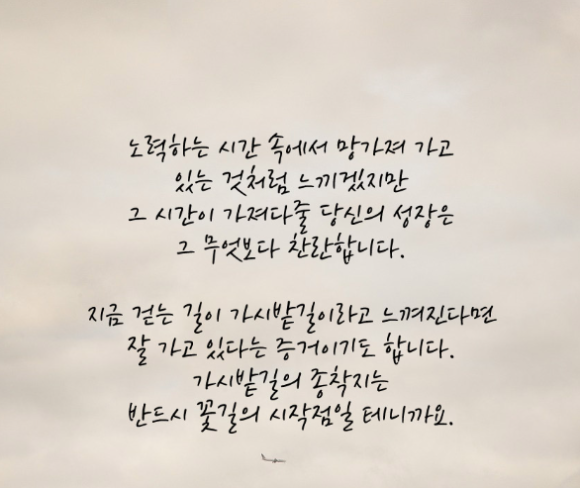 노력하는 시간 속에서 망가져 가고
있는 것처럼 느끼겠지만
그 시간이 가져다줄 당신의 성장은
그 무엇보다 찬란합니다.
지금 걷는 길이 가시밭길이라고 느껴진다면
잘 가고 있다는 증거이기도 합니다.
가시밭길의 종착지는
반드시 꽃길의 시작점일 테니까요.